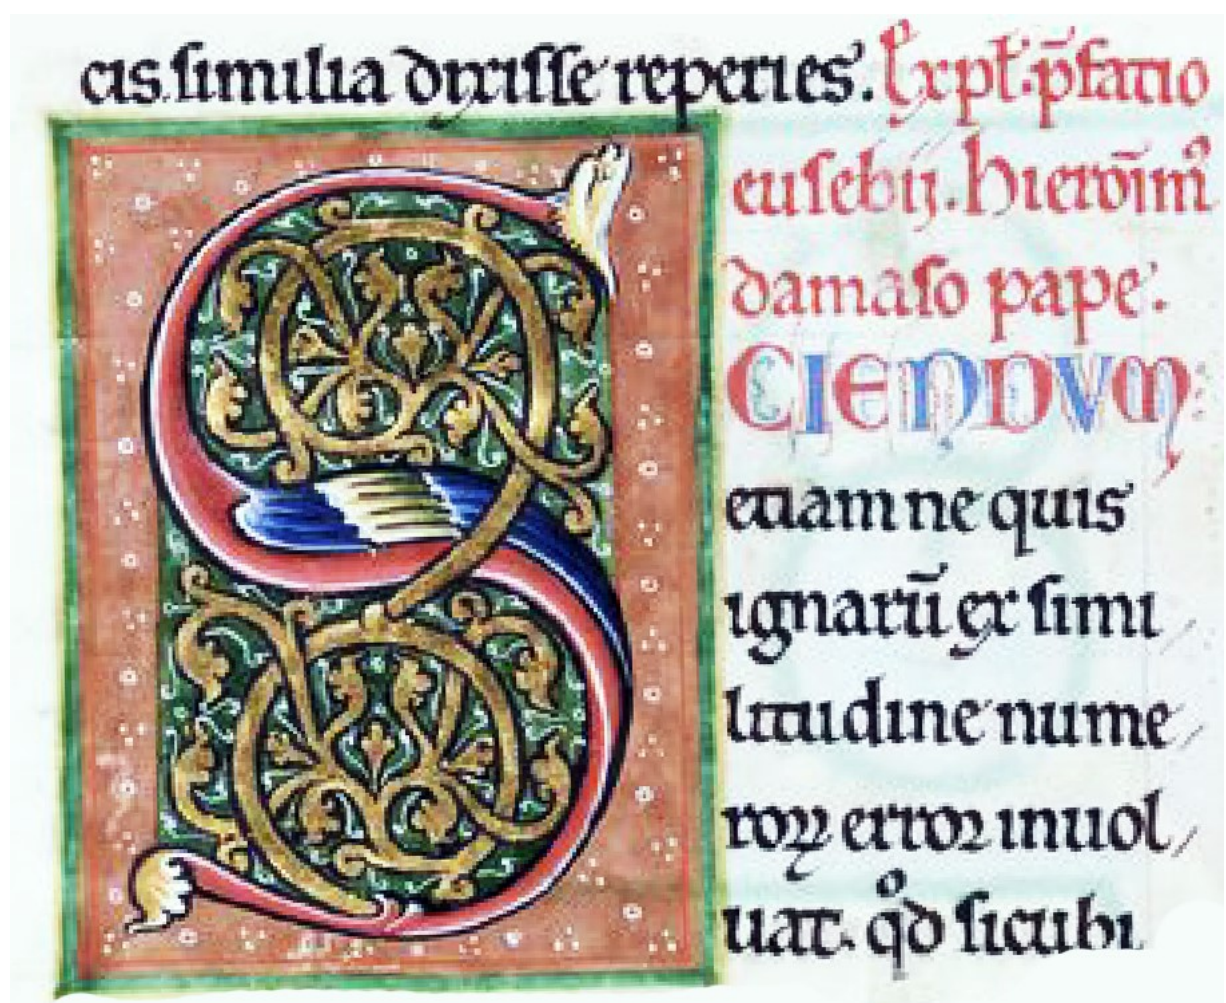 cis similia dixisse reperies. Expɫ. p̄fatio
eusebij. hieroīmꝰ
damaso pape.
SCIENDVM
etiam ne quis
ignarū ex simi
litudine nume
roꝝ error inuol
uat. qͦd sicubi